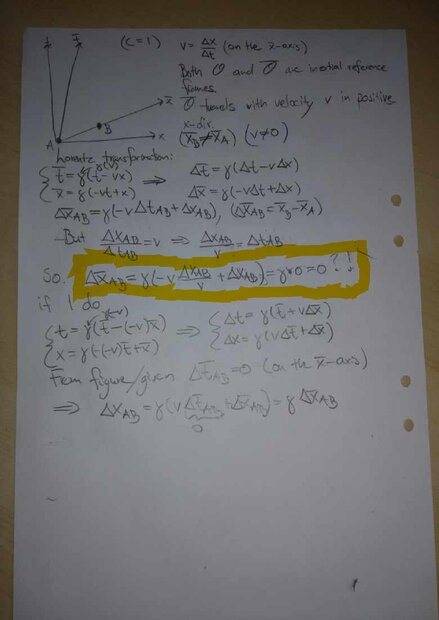 t t̄ (c=1) v = Δx/Δt (on the x̄-axis)
Both O and Ō are inertial reference
frames.
Ō travels with velocity v in positive
x-dir.
x̄
B
A x (x̄_B ≠ x̄_A) (v≠0)
Lorentz transformation:
{ t̄ = γ(t - vx) ⇒ Δt̄ = γ(Δt - vΔx)
{ x̄ = γ(-vt + x) Δx̄ = γ(-vΔt + Δx)
Δx̄_AB = γ(-vΔt_AB + Δx_AB), (Δx̄_AB = x̄_B - x̄_A)
But Δx_AB/Δt_AB = v ⇒ Δx_AB/v = Δt_AB
So. Δx̄_AB = γ(-v Δx_AB/v + Δx_AB) = γ·0 = 0 ?!
if I do
{ t = γ(t̄ - (-v)x̄) ⇒ { Δt = γ(t̄ + vΔx̄)
{ x = γ(-(-v)t̄ + x̄) { Δx = γ(vΔt̄ + Δx̄)
From figure/given Δt̄_AB = 0 (on the x̄-axis)
⇒ Δx_AB = γ(vΔt̄_AB + Δx̄_AB) = γ Δx̄_AB
0